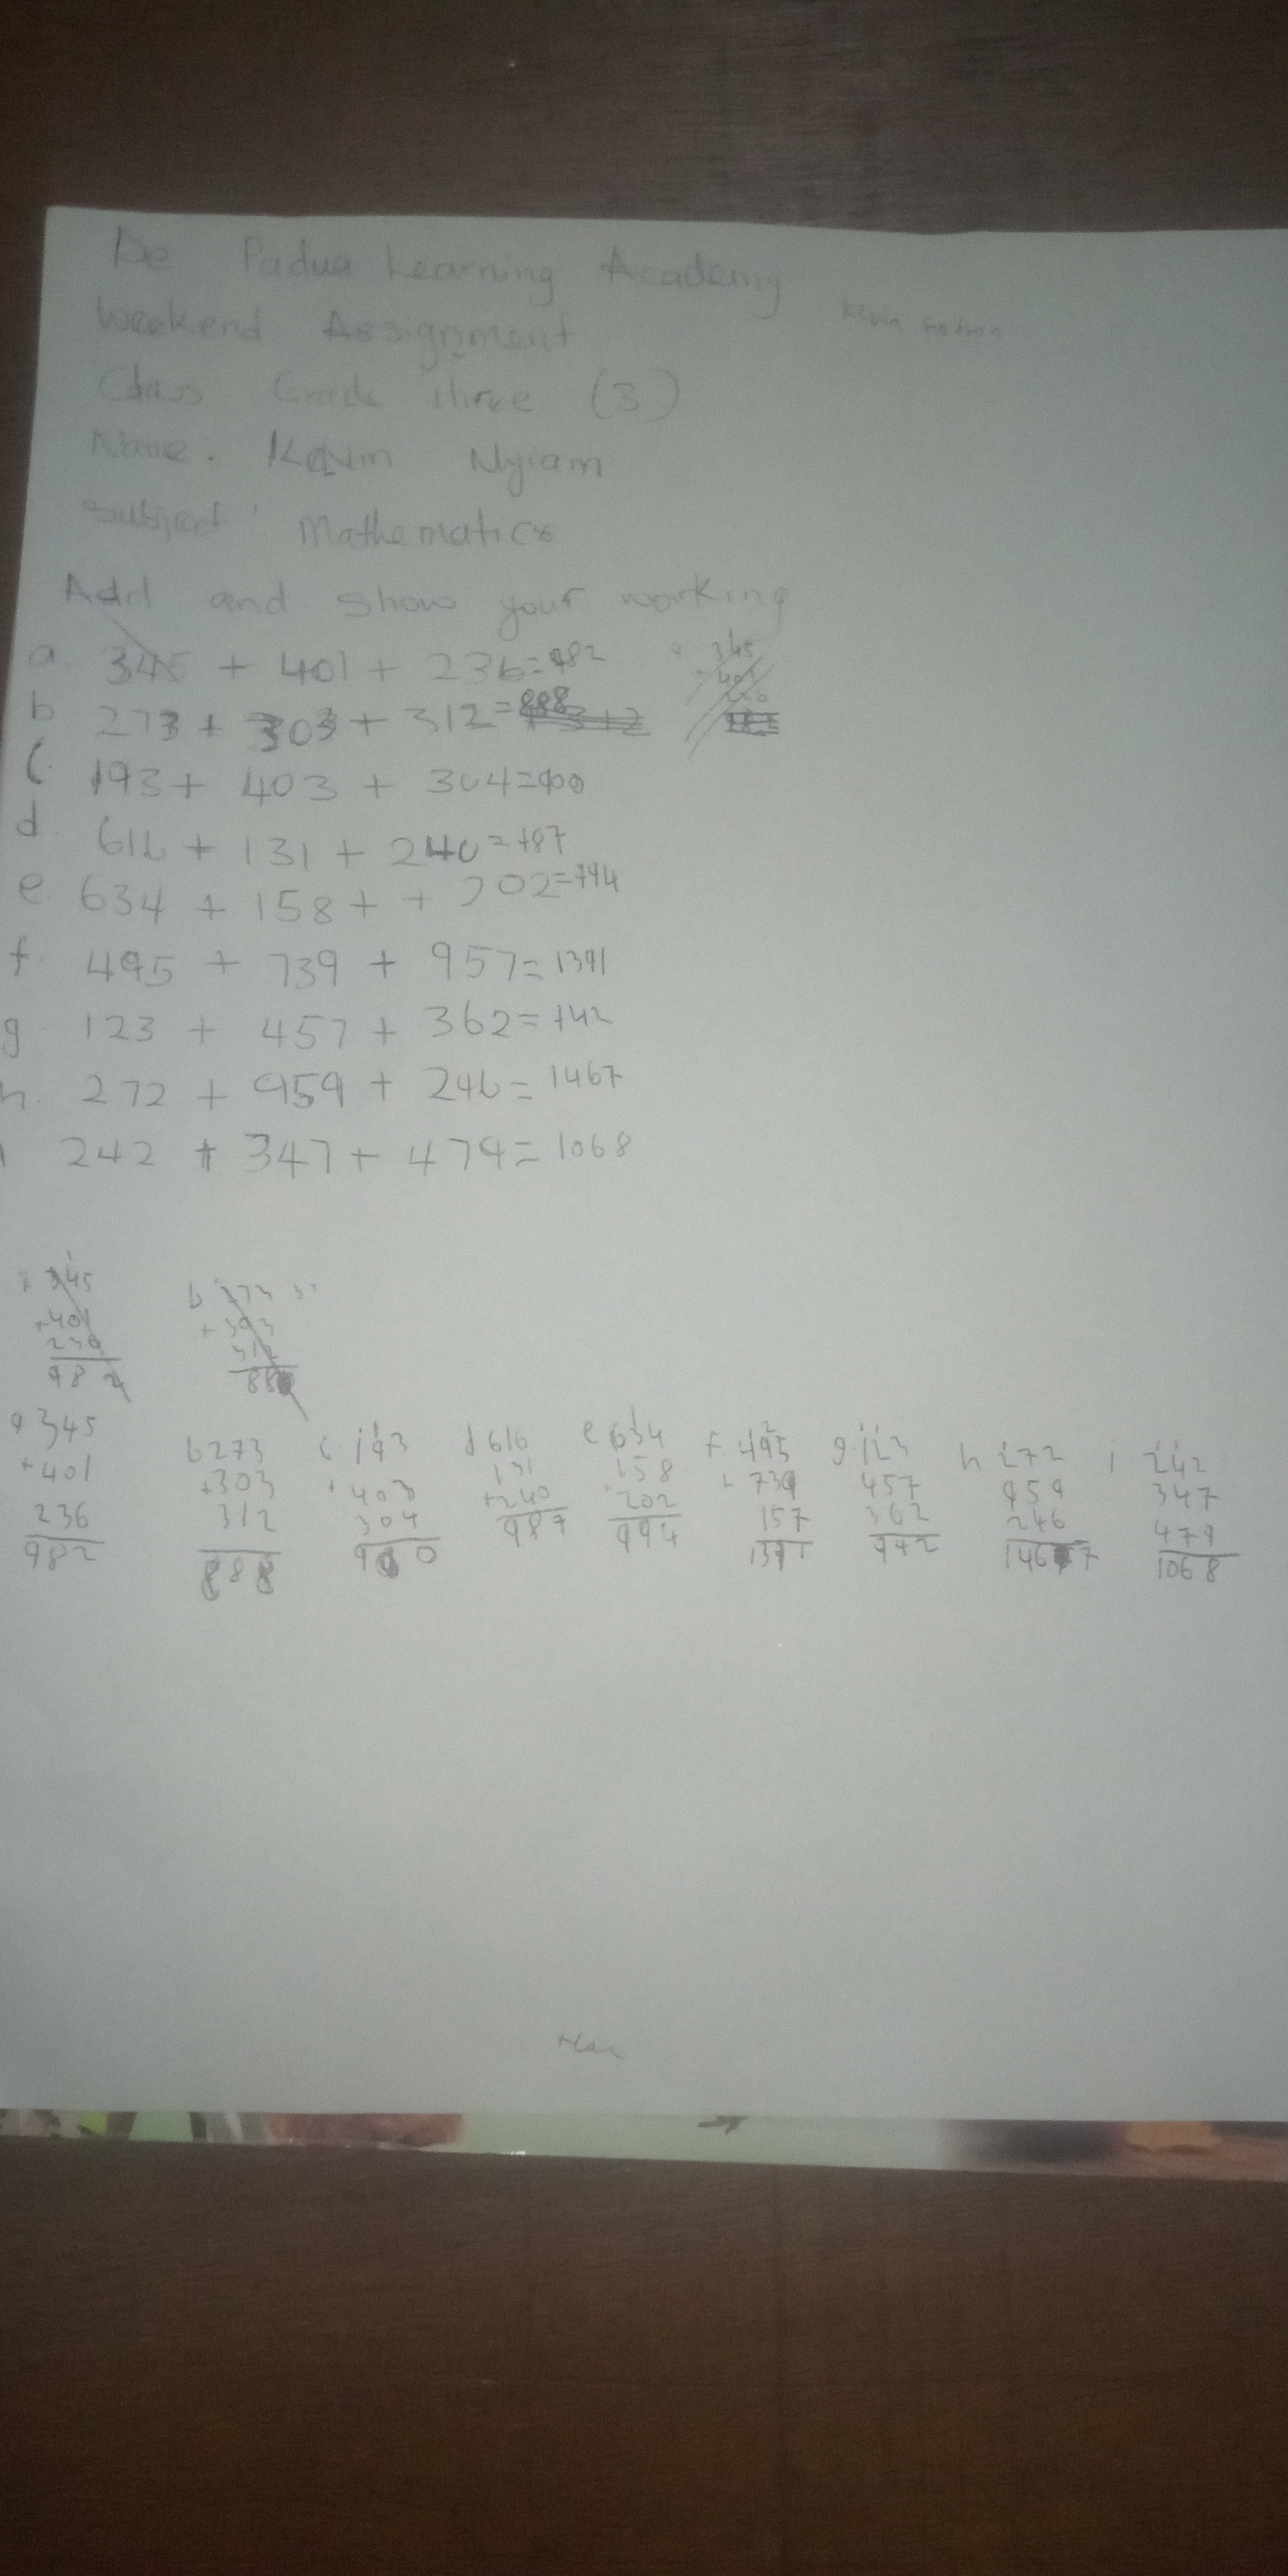 De Padua Learning Academy
Weekend Assignment
Class Grade three (3)
Name. Kevin Nyiam
Subject Mathematics
Add and show your working
a 345 + 401 + 236=982
b 273 + 303 + 312=888
c. 193 + 403 + 304=900
d. 616 + 131 + 240=987
e. 634 + 158 + + 202=994
f. 495 + 739 + 957=1391
g. 123 + 457 + 362=942
h. 272 + 959 + 246=1467
i 242 + 347 + 479=1068
a 345 b 273 c 193 d 616 e 634 f 495 g 123 h 272 i 242
+401 +303 +403 131 158 +739 457 959 347
236 312 304 +240 +202 157 362 246 479
982 888 900 987 994 1391 942 1467 1068